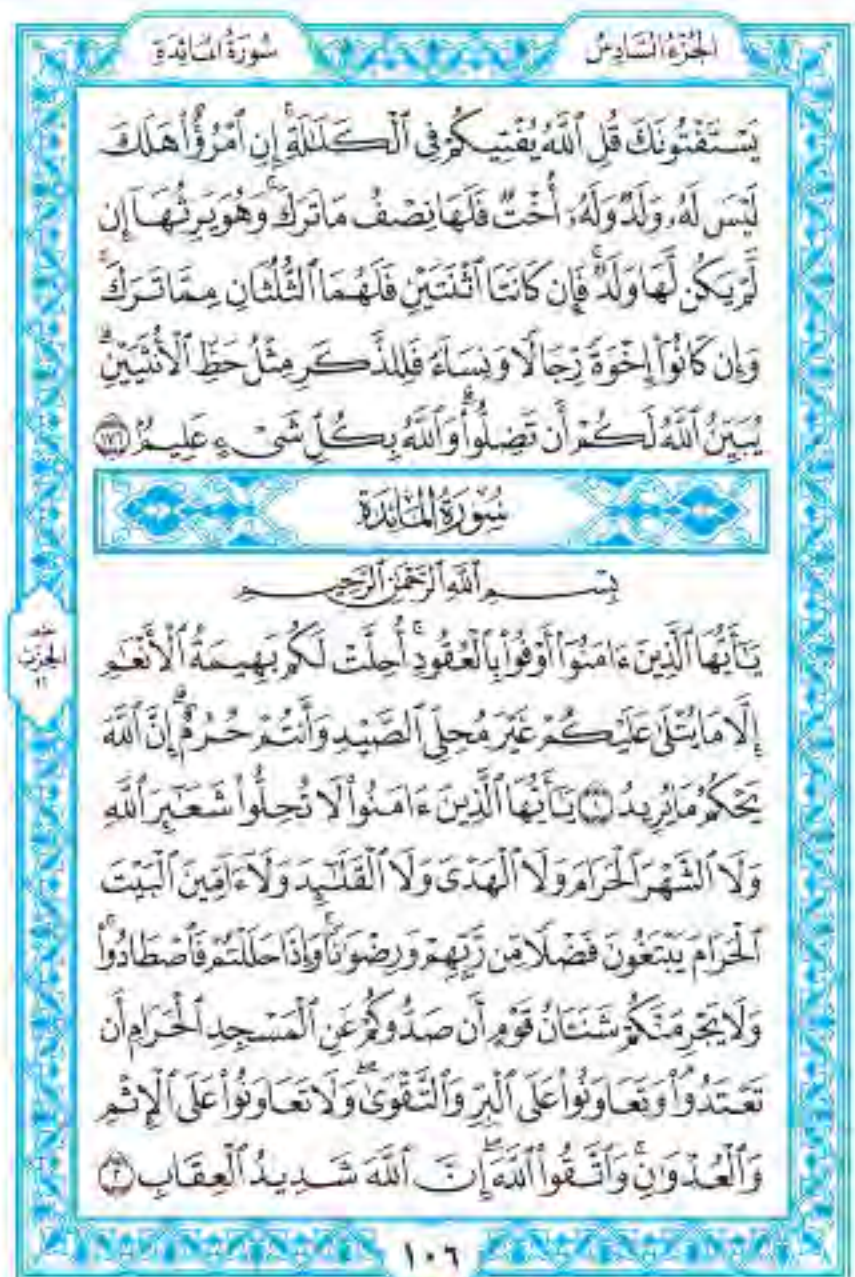 الجزء السادس
سورة المائدة
يَسْتَفْتُونَكَ قُلِ ٱللَّهُ يُفْتِيكُمْ فِى ٱلْكَلَـٰلَةِ ۚ إِنِ ٱمْرُؤٌا۟ هَلَكَ
لَيْسَ لَهُۥ وَلَدٌ وَلَهُۥٓ أُخْتٌ فَلَهَا نِصْفُ مَا تَرَكَ ۚ وَهُوَ يَرِثُهَآ إِن
لَّمْ يَكُن لَّهَا وَلَدٌ ۚ فَإِن كَانَتَا ٱثْنَتَيْنِ فَلَهُمَا ٱلثُّلُثَانِ مِمَّا تَرَكَ ۚ
وَإِن كَانُوٓا۟ إِخْوَةً رِّجَالًا وَنِسَآءً فَلِلذَّكَرِ مِثْلُ حَظِّ ٱلْأُنثَيَيْنِ ۗ
يُبَيِّنُ ٱللَّهُ لَكُمْ أَن تَضِلُّوا۟ ۗ وَٱللَّهُ بِكُلِّ شَىْءٍ عَلِيمٌۢ ١٧٦
سُورَةُ المَائِدَةِ
بِسْمِ ٱللَّهِ ٱلرَّحْمَـٰنِ ٱلرَّحِيمِ
يَـٰٓأَيُّهَا ٱلَّذِينَ ءَامَنُوٓا۟ أَوْفُوا۟ بِٱلْعُقُودِ ۚ أُحِلَّتْ لَكُم بَهِيمَةُ ٱلْأَنْعَـٰمِ
إِلَّا مَا يُتْلَىٰ عَلَيْكُمْ غَيْرَ مُحِلِّى ٱلصَّيْدِ وَأَنتُمْ حُرُمٌ ۗ إِنَّ ٱللَّهَ
يَحْكُمُ مَا يُرِيدُ ١ يَـٰٓأَيُّهَا ٱلَّذِينَ ءَامَنُوا۟ لَا تُحِلُّوا۟ شَعَـٰٓئِرَ ٱللَّهِ
وَلَا ٱلشَّهْرَ ٱلْحَرَامَ وَلَا ٱلْهَدْىَ وَلَا ٱلْقَلَـٰٓئِدَ وَلَآ ءَآمِّينَ ٱلْبَيْتَ
ٱلْحَرَامَ يَبْتَغُونَ فَضْلًا مِّن رَّبِّهِمْ وَرِضْوَٰنًا ۚ وَإِذَا حَلَلْتُمْ فَٱصْطَادُوا۟ ۚ
وَلَا يَجْرِمَنَّكُمْ شَنَـَٔانُ قَوْمٍ أَن صَدُّوكُمْ عَنِ ٱلْمَسْجِدِ ٱلْحَرَامِ أَن
تَعْتَدُوا۟ ۘ وَتَعَاوَنُوا۟ عَلَى ٱلْبِرِّ وَٱلتَّقْوَىٰ ۖ وَلَا تَعَاوَنُوا۟ عَلَى ٱلْإِثْمِ
وَٱلْعُدْوَٰنِ ۚ وَٱتَّقُوا۟ ٱللَّهَ ۖ إِنَّ ٱللَّهَ شَدِيدُ ٱلْعِقَابِ ٢
الحزب
١٠٦